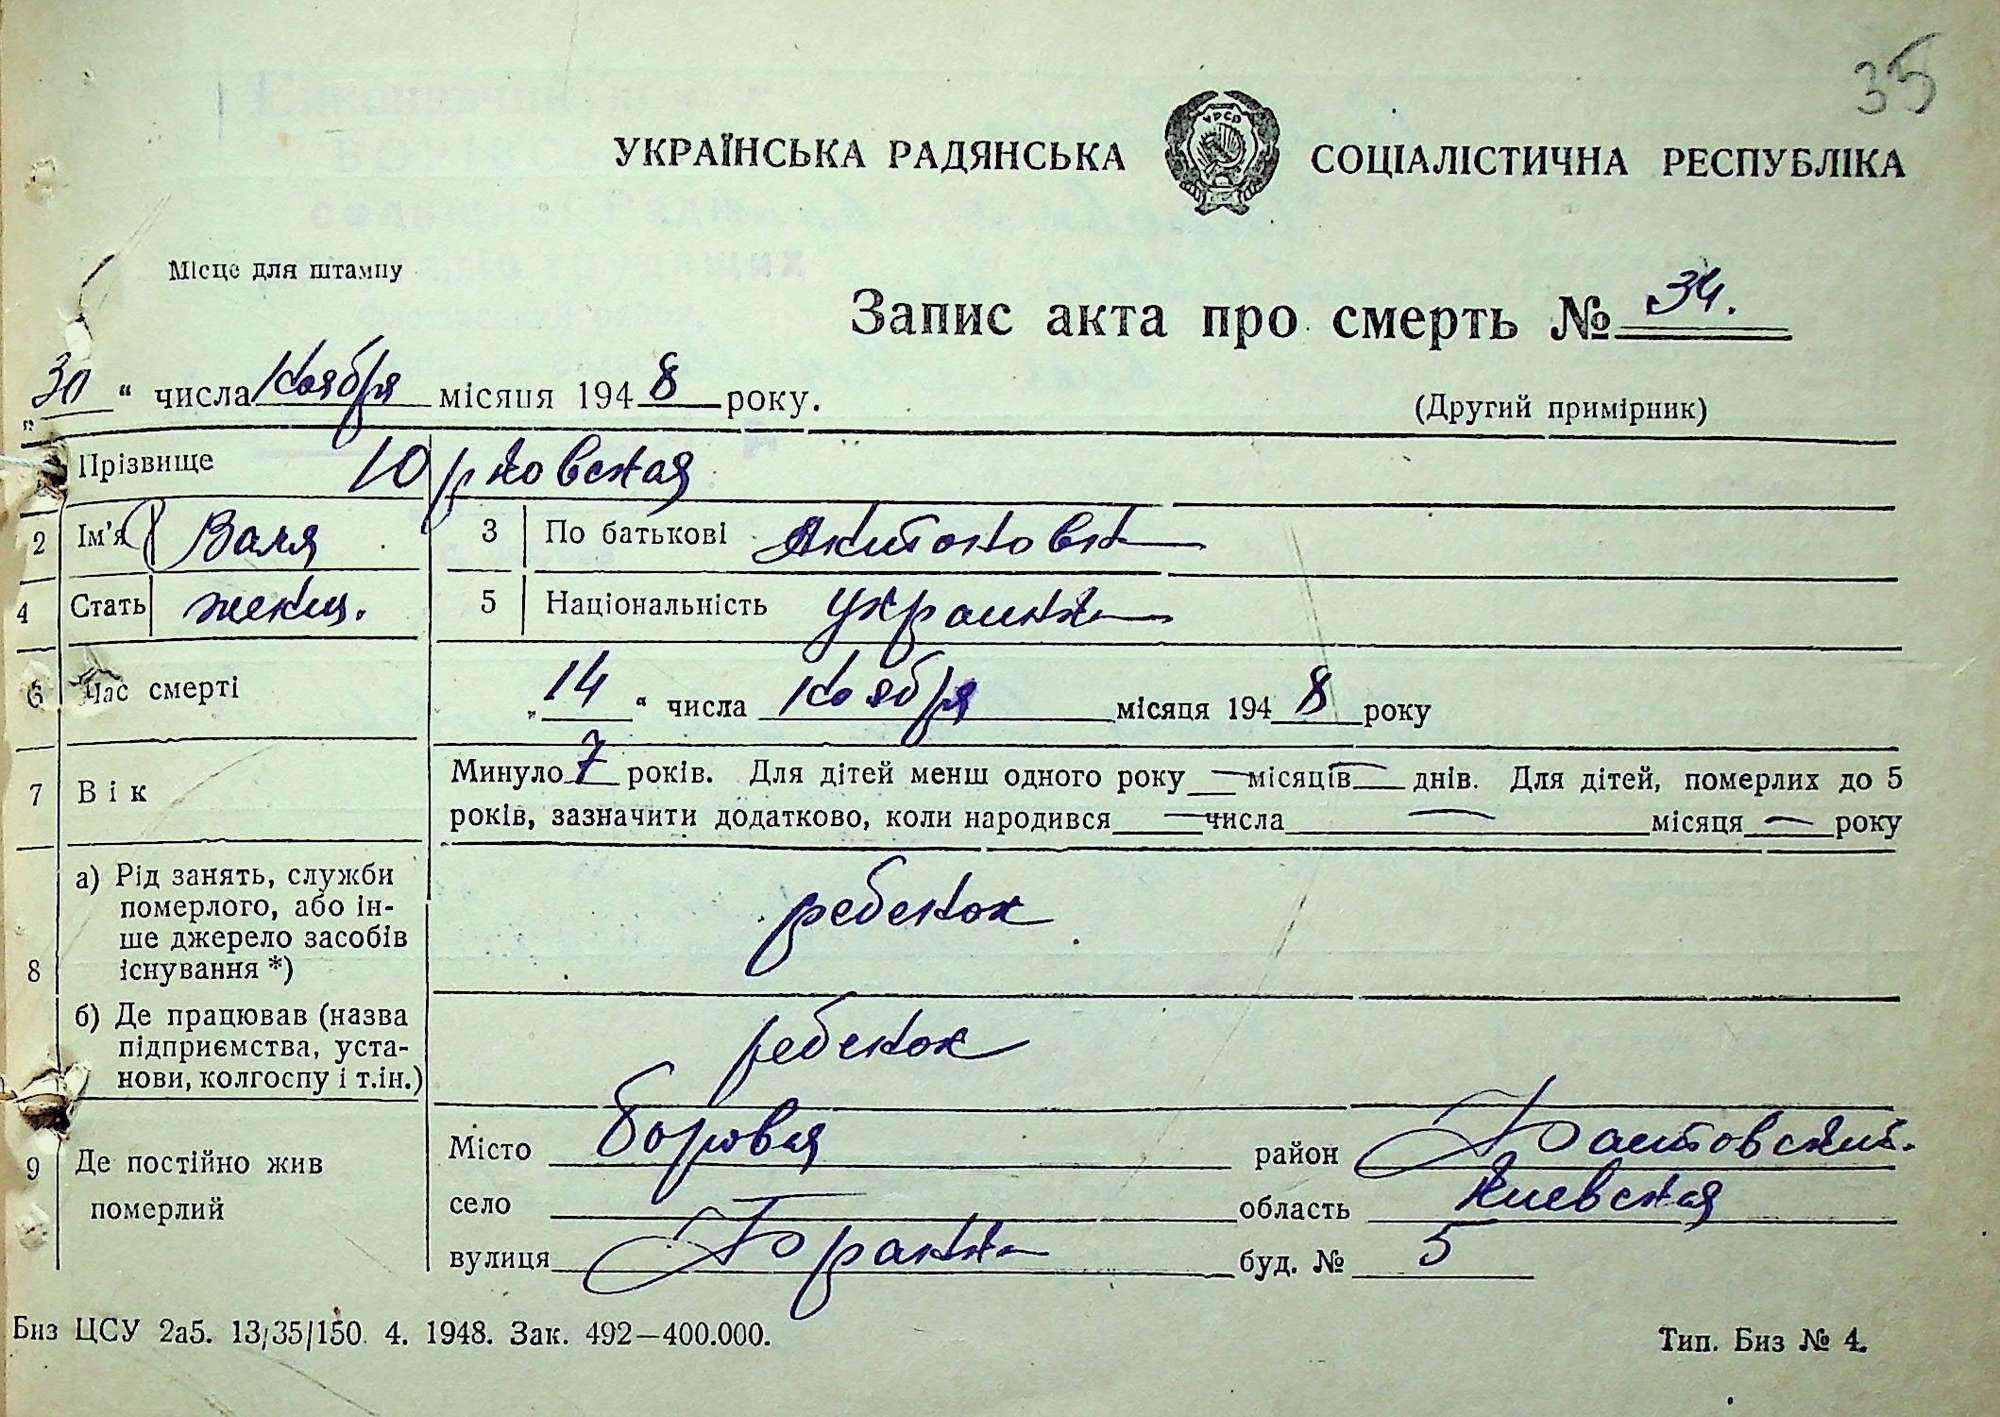 35
УКРАЇНСЬКА РАДЯНСЬКА СОЦІАЛІСТИЧНА РЕСПУБЛІКА
УРСР
Місце для штампу
Запис акта про смерть № 34.
„30“ числа ноября місяця 1948 року.
(Другий примірник)
Прізвище Юрковская
2 Ім'я Валя 3 По батькові Антоновна
4 Стать женщ. 5 Національність украинка
6 Час смерті „14“ числа ноября місяця 1948 року
7 Вік Минуло 7 років. Для дітей менш одного року — місяців — днів. Для дітей, померлих до 5
років, зазначити додатково, коли народився — числа — місяця — року
8 а) Рід занять, служби
померлого, або ін-
ше джерело засобів
існування *)
ребенок
б) Де працював (назва
підприємства, уста-
нови, колгоспу і т.ін.)
ребенок
9 Де постійно жив
померлий
Місто Боровая район
село — область Киевская
вулиця Франка буд. № 5
Биз ЦСУ 2а5. 13/35/150. 4. 1948. Зак. 492—400.000.
Тип. Биз № 4.